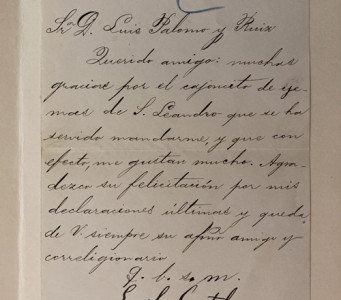 Sr. D. Luis Palomo y Ruiz
Querido amigo: muchas
gracias por el cajoncito de ye-
mas de S. Leandro que se ha
servido mandarme, y que con
efecto, me gustan mucho. Agra-
dezco su felicitación por mis
declaraciones últimas y queda
de V. siempre su afmo amigo y
correligionario
q. b. s. m.